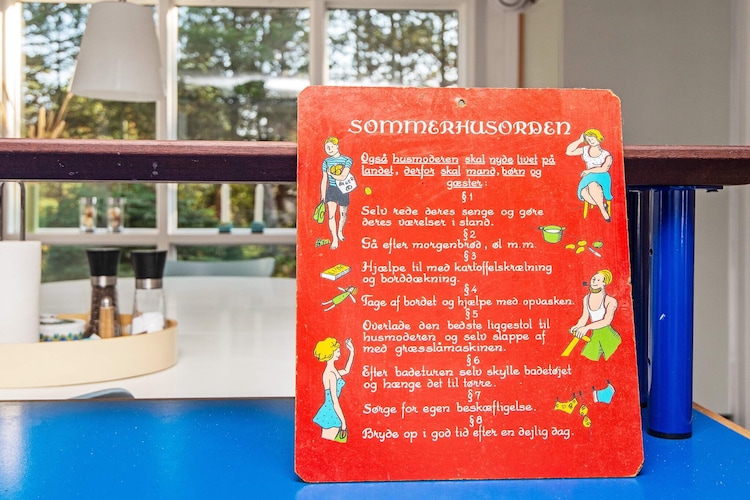 SOMMERHUSORDEN
Også husmoderen skal nyde livet på
landet, derfor skal mand, børn og
gæster:
§ 1
Selv rede deres senge og gøre
deres værelser i stand.
§ 2
Gå efter morgenbrød, øl m.m.
§ 3
Hjælpe til med kartoffelskrælning
og borddækning.
§ 4
Tage af bordet og hjælpe med opvasken.
§ 5
Overlade den bedste liggestol til
husmoderen og selv slappe af
med græsslåmaskinen.
§ 6
Efter badeturen selv skylle badetøjet
og hænge det til tørre.
§ 7
Sørge for egen beskæftigelse.
§ 8
Bryde op i god tid efter en dejlig dag.